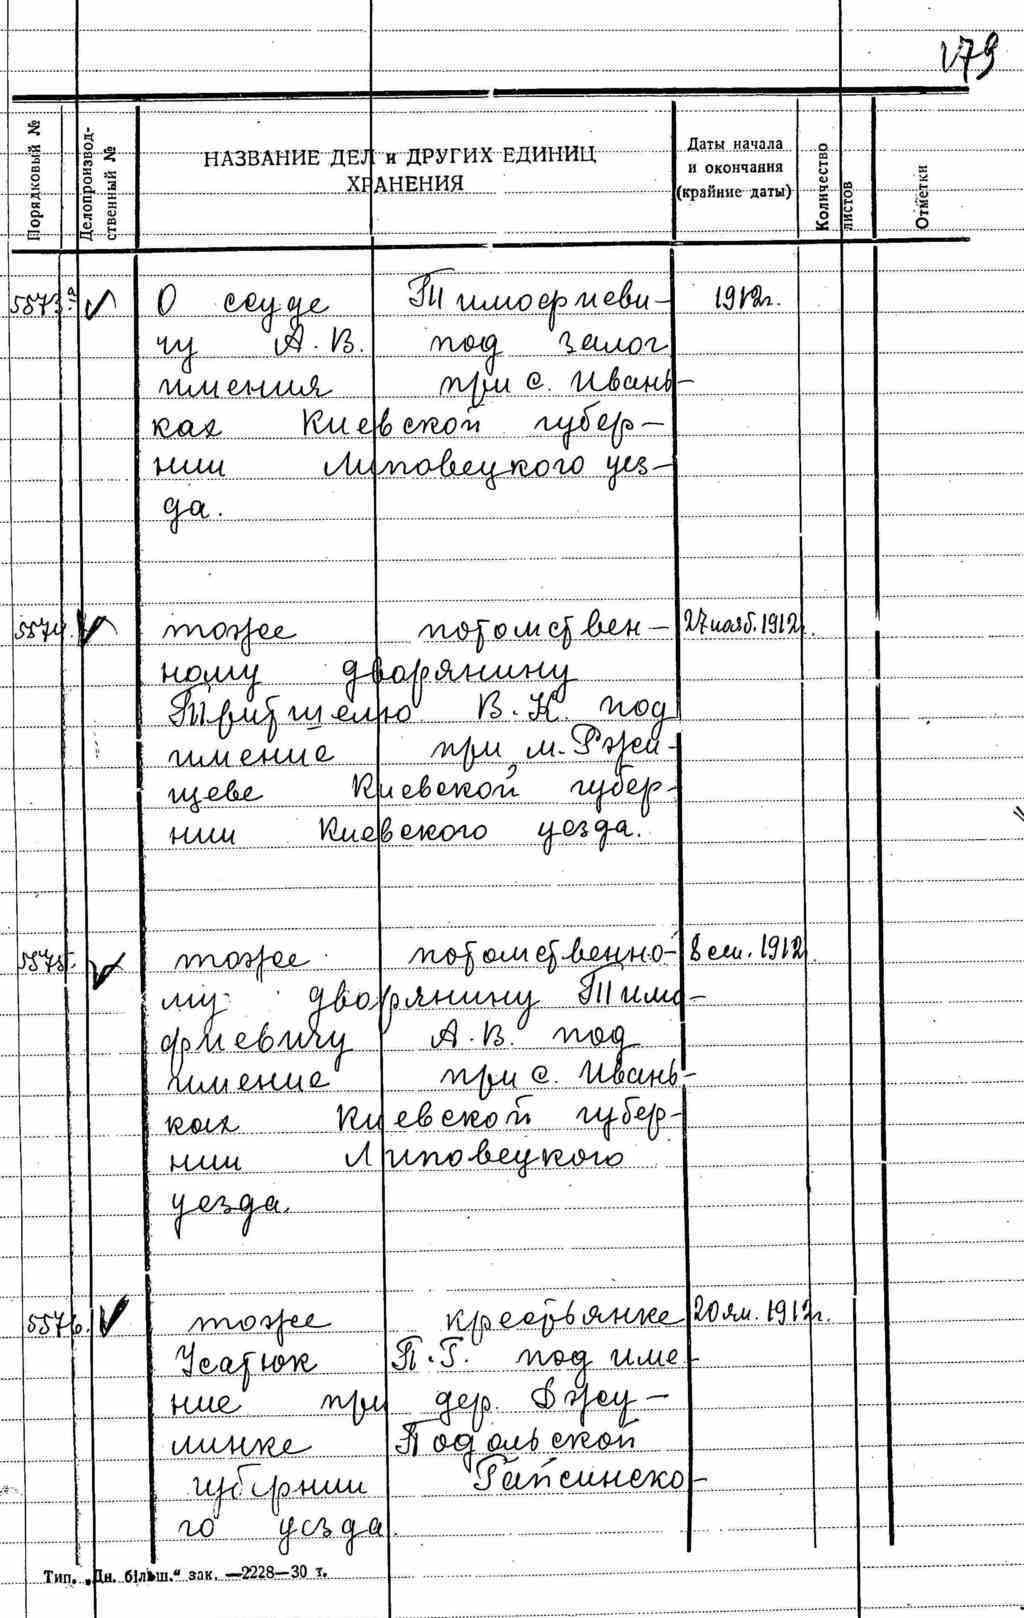 179
Порядковый №
Делопроизвод-
ственный №
НАЗВАНИЕ ДЕЛ и ДРУГИХ ЕДИНИЦ
ХРАНЕНИЯ
Даты начала
и окончания
(крайние даты)
Количество
листов
Отметки
5573.а О ссуде Тимофиеви- 1912г.
чу А.В. под залог
имения при с. Ивань-
ках Киевской губер-
нии Липовецкого уез-
да.
5574. тоже потомствен- 27 нояб. 1912
ному дворянину
Тритшелю В.К. под
имение при м. Ржи-
щеве Киевской губер-
нии Киевского уезда.
5575. тоже потомственно- 8 сен. 1912
му дворянину Тимо-
фиевичу А.В. под
имение при с. Ивань-
ках Киевской губер-
нии Липовецкого
уезда.
5576. тоже крестьянке 20 ян. 1912г.
Усатюк П.Г. под име-
ние при дер. Джу-
линке Подольской
губернии Гайсинско-
го уезда.
Тип. „Дн. більш.“ зак. —2228—30 т.